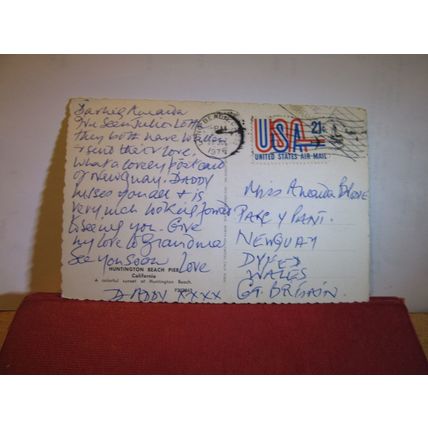 Darling Amanda
I've seen Julio & Lotti
they both have
& send their love.
What a lovely Post card
of Newquay. DADDY
misses you all & is
very much looking forward
to seeing you. Give
my love to Grandma
See you soon Love
DADDY XXXX
HUNTINGTON BEACH PIER
California
A colorful sunset at Huntington Beach.
BEACH
1975
USA 21c
UNITED STATES AIR MAIL
Miss Amanda
PARC Y PANT.
NEWQUAY
DYFED
WALES
GT. BRITAIN.